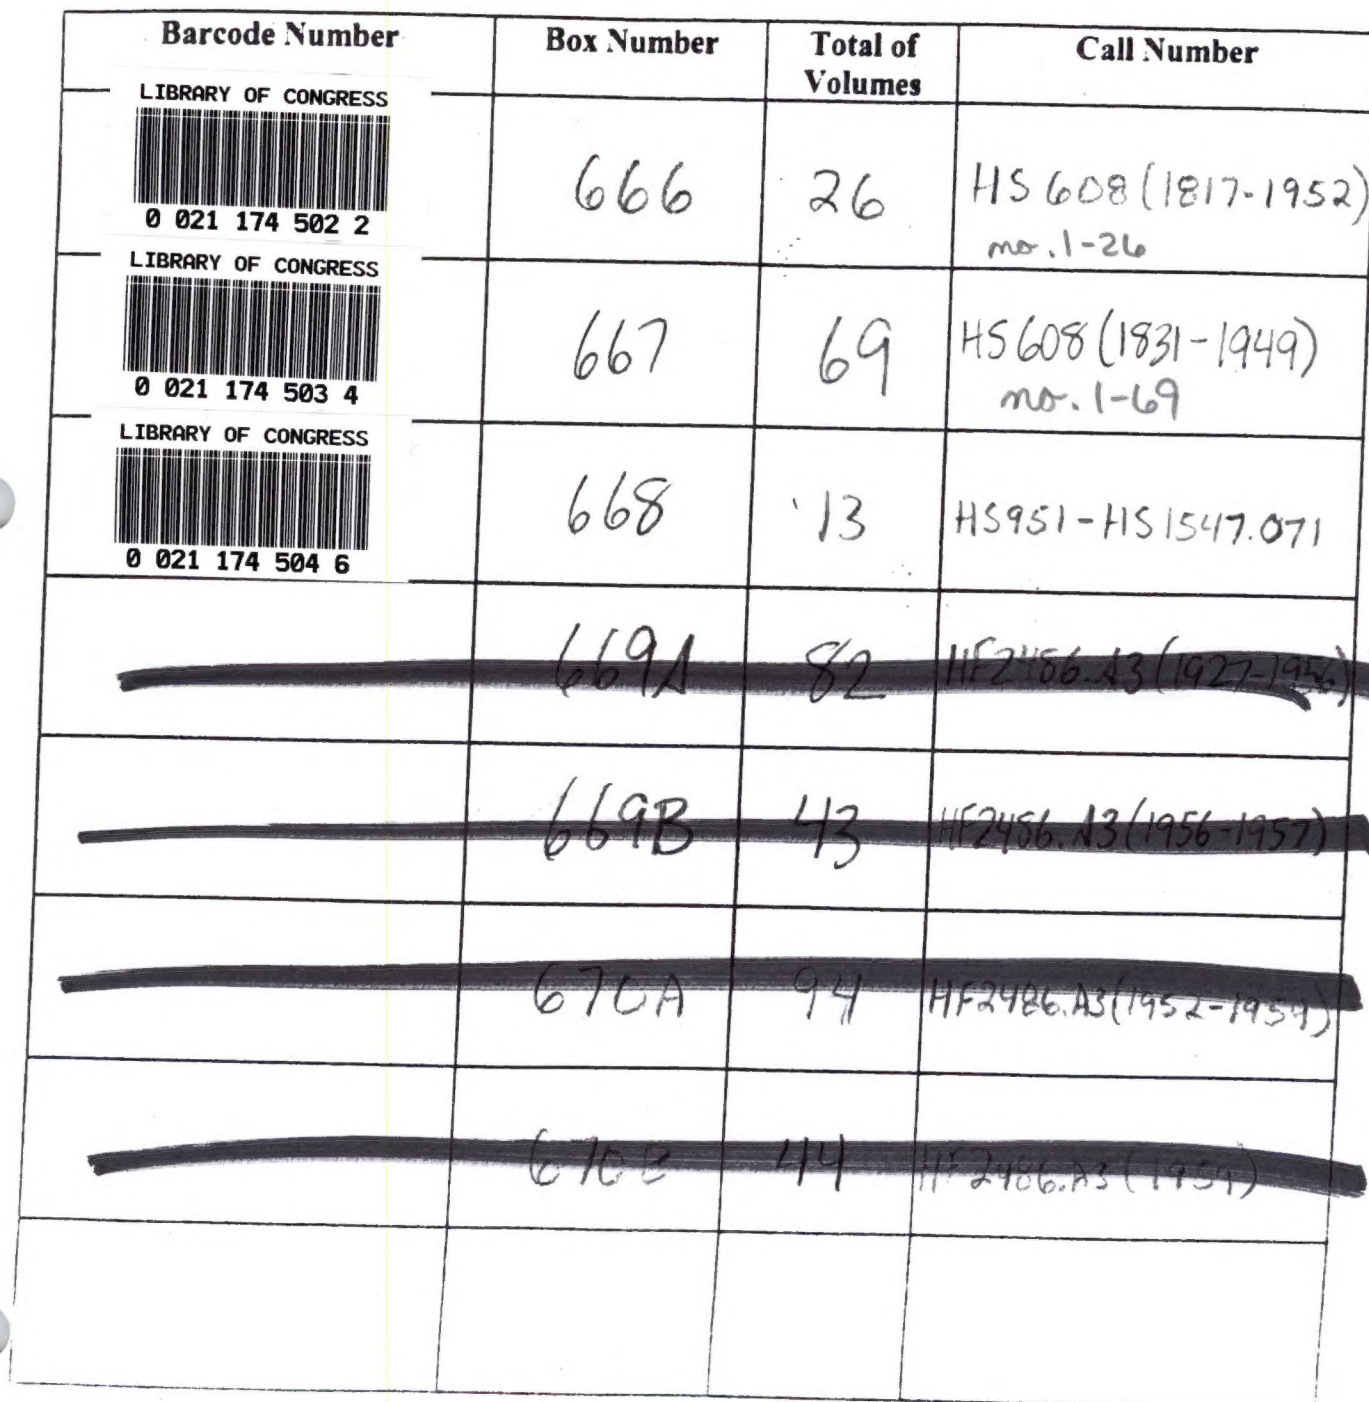 Barcode Number Box Number Total of Volumes Call Number
LIBRARY OF CONGRESS
0 021 174 502 2
666 26 HS 608 (1817-1952)
no. 1-26
LIBRARY OF CONGRESS
0 021 174 503 4
667 69 HS 608 (1831-1949)
no. 1-69
LIBRARY OF CONGRESS
0 021 174 504 6
668 13 HS951-HS1547.071
669A 82 HF2486.A3(1927-1956)
669B 43 HF2486.A3(1956-1957)
670A 94 HF2486.A3(1952-1959)
670B 44 HF2486.A3(1959)